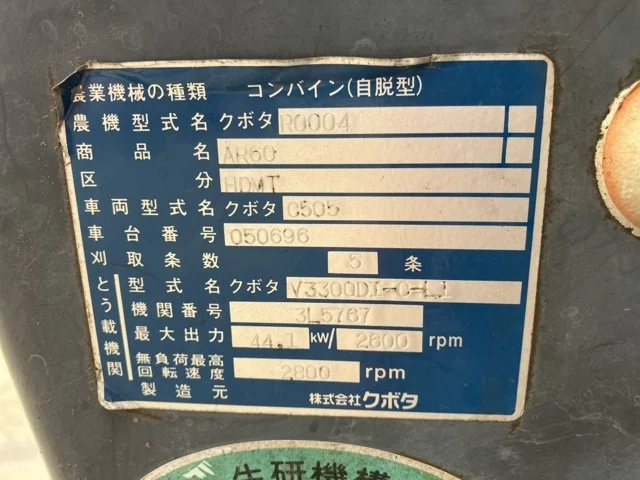 農業機械の種類 コンバイン(自脱型)
農機型式名 クボタ R0004
商品名 AR60
区分 HDMT
車両型式名 クボタ C505
車台番号 050696
刈取条数 5 条
とう載機関
型式名 クボタ V3300DI-C-L1
機関番号 3L5767
最大出力 44.1 kW/ 2600 rpm
無負荷最高回転速度 2800 rpm
製造元 株式会社クボタ
生研機構